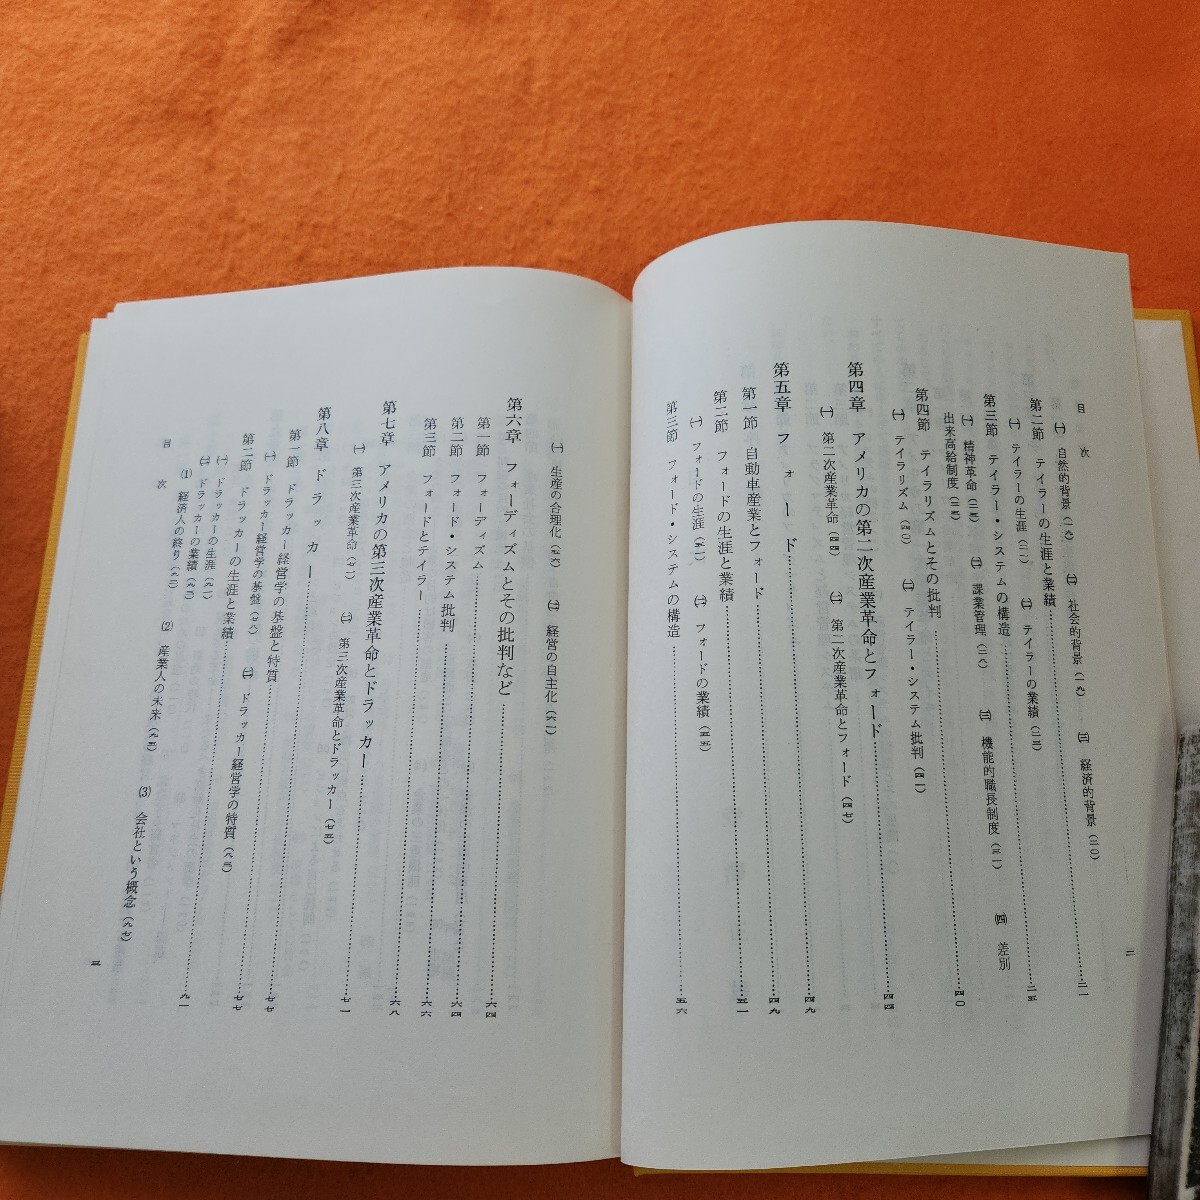 目次
㈠ 自然的背景(一六) ㈡ 社会的背景(一九) ㈢ 経済的背景(二〇)
第二節 テイラーの生涯と業績……二一
㈠ テイラーの生涯(二一) ㈡ テイラーの業績(二三)
第三節 テイラー・システムの構造……二五
㈠ 精神革命(二五) ㈡ 課業管理(二八) ㈢ 機能的職長制度(三一) ㈣ 差別
出来高給制度(三五)
第四節 テイラリズムとその批判……四〇
㈠ テイラリズム(四〇) ㈡ テイラー・システム批判(四一)
第四章 アメリカの第二次産業革命とフォード……四四
㈠ 第二次産業革命(四四) ㈡ 第二次産業革命とフォード(四七)
第五章 フォード……四九
第一節 自動車産業とフォード……四九
第二節 フォードの生涯と業績……五一
㈠ フォードの生涯(五一) ㈡ フォードの業績(五五)
第三節 フォード・システムの構造……五六
二
㈠ 生産の合理化(五六) ㈡ 経営の自主化(六一)
第六章 フォーディズムとその批判など……六四
第一節 フォーディズム……六四
第二節 フォード・システム批判……六六
第三節 フォードとテイラー……六八
第七章 アメリカの第三次産業革命とドラッカー……七一
㈠ 第三次産業革命(七一) ㈡ 第三次産業革命とドラッカー(七五)
第八章 ドラッカー……七七
第一節 ドラッカー経営学の基盤と特質……七七
㈠ ドラッカー経営学の基盤(七八) ㈡ ドラッカー経営学の特質(八三)
第二節 ドラッカーの生涯と業績……九一
㈠ ドラッカーの生涯(九一)
㈡ ドラッカーの業績(九三)
⑴ 経済人の終り(九三) ⑵ 産業人の未来(九五) ⑶ 会社という概念(九七)
目次
三